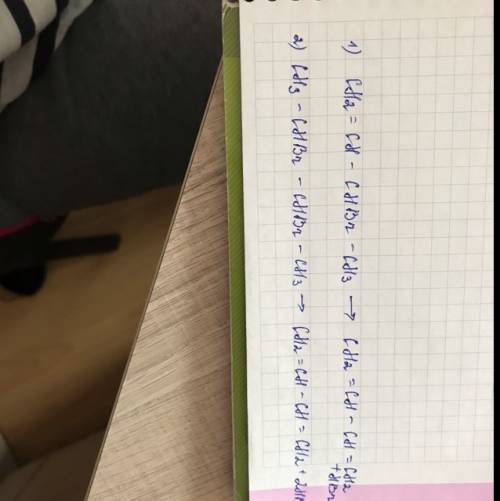 1) CH2 = CH - CHBr - CH3 → CH2 = CH - CH = CH2
+ HBr
2) CH3 - CHBr - CHBr - CH3 → CH2 = CH - CH = CH2 +